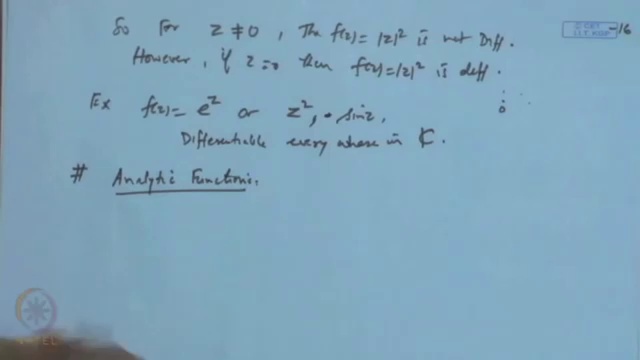 So For z ≠ 0, The f(z) = |z|² is not Diff.
However, if z = 0 then f(z) = |z|² is diff.
Ex f(z) = e^z or z², sin z,
Differentiable every where in ₵.
# Analytic Functions.
© CET
I.I.T. KGP
-16